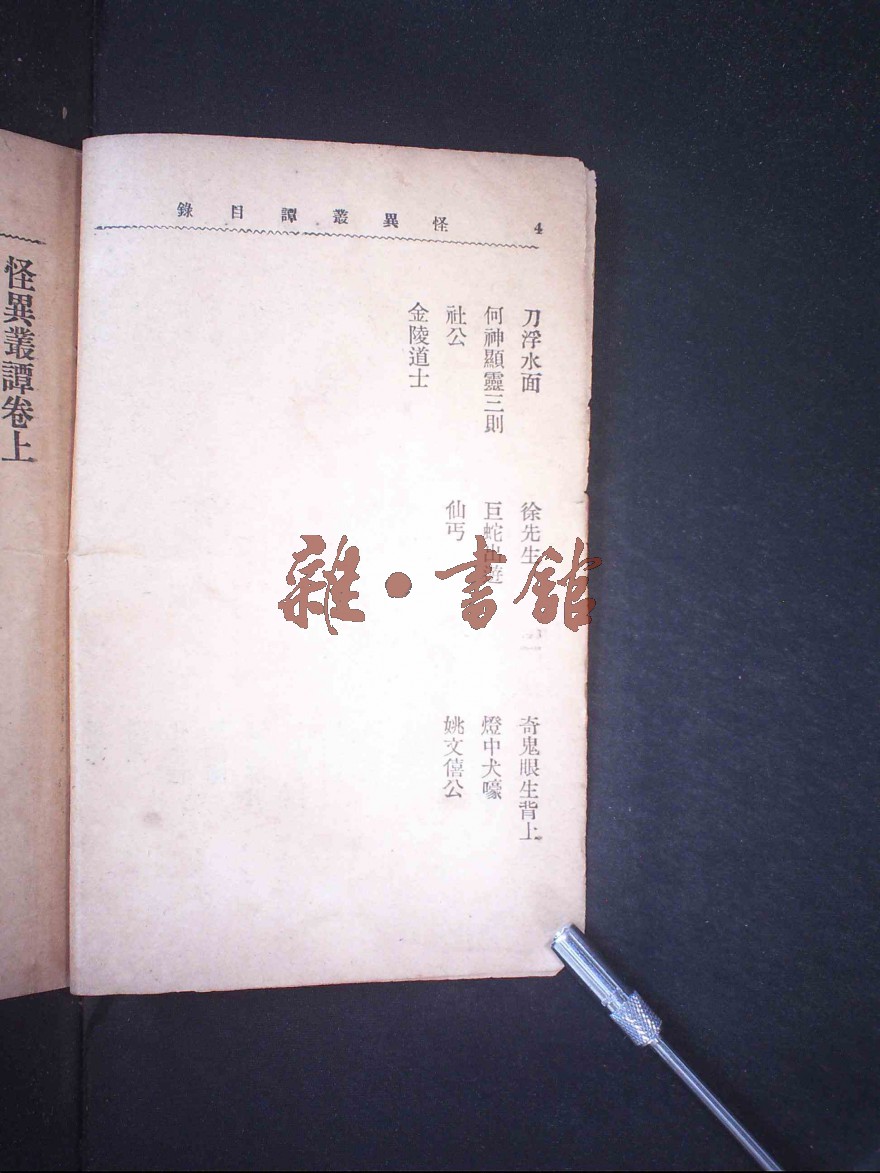 怪異叢譚目錄
4
刀浮水面
徐先生
奇鬼眼生背上
何神顯靈三則
巨蛇出遊
燈中犬嚎
社公
仙丐
姚文僖公
金陵道士
怪異叢譚卷上
雜·書館